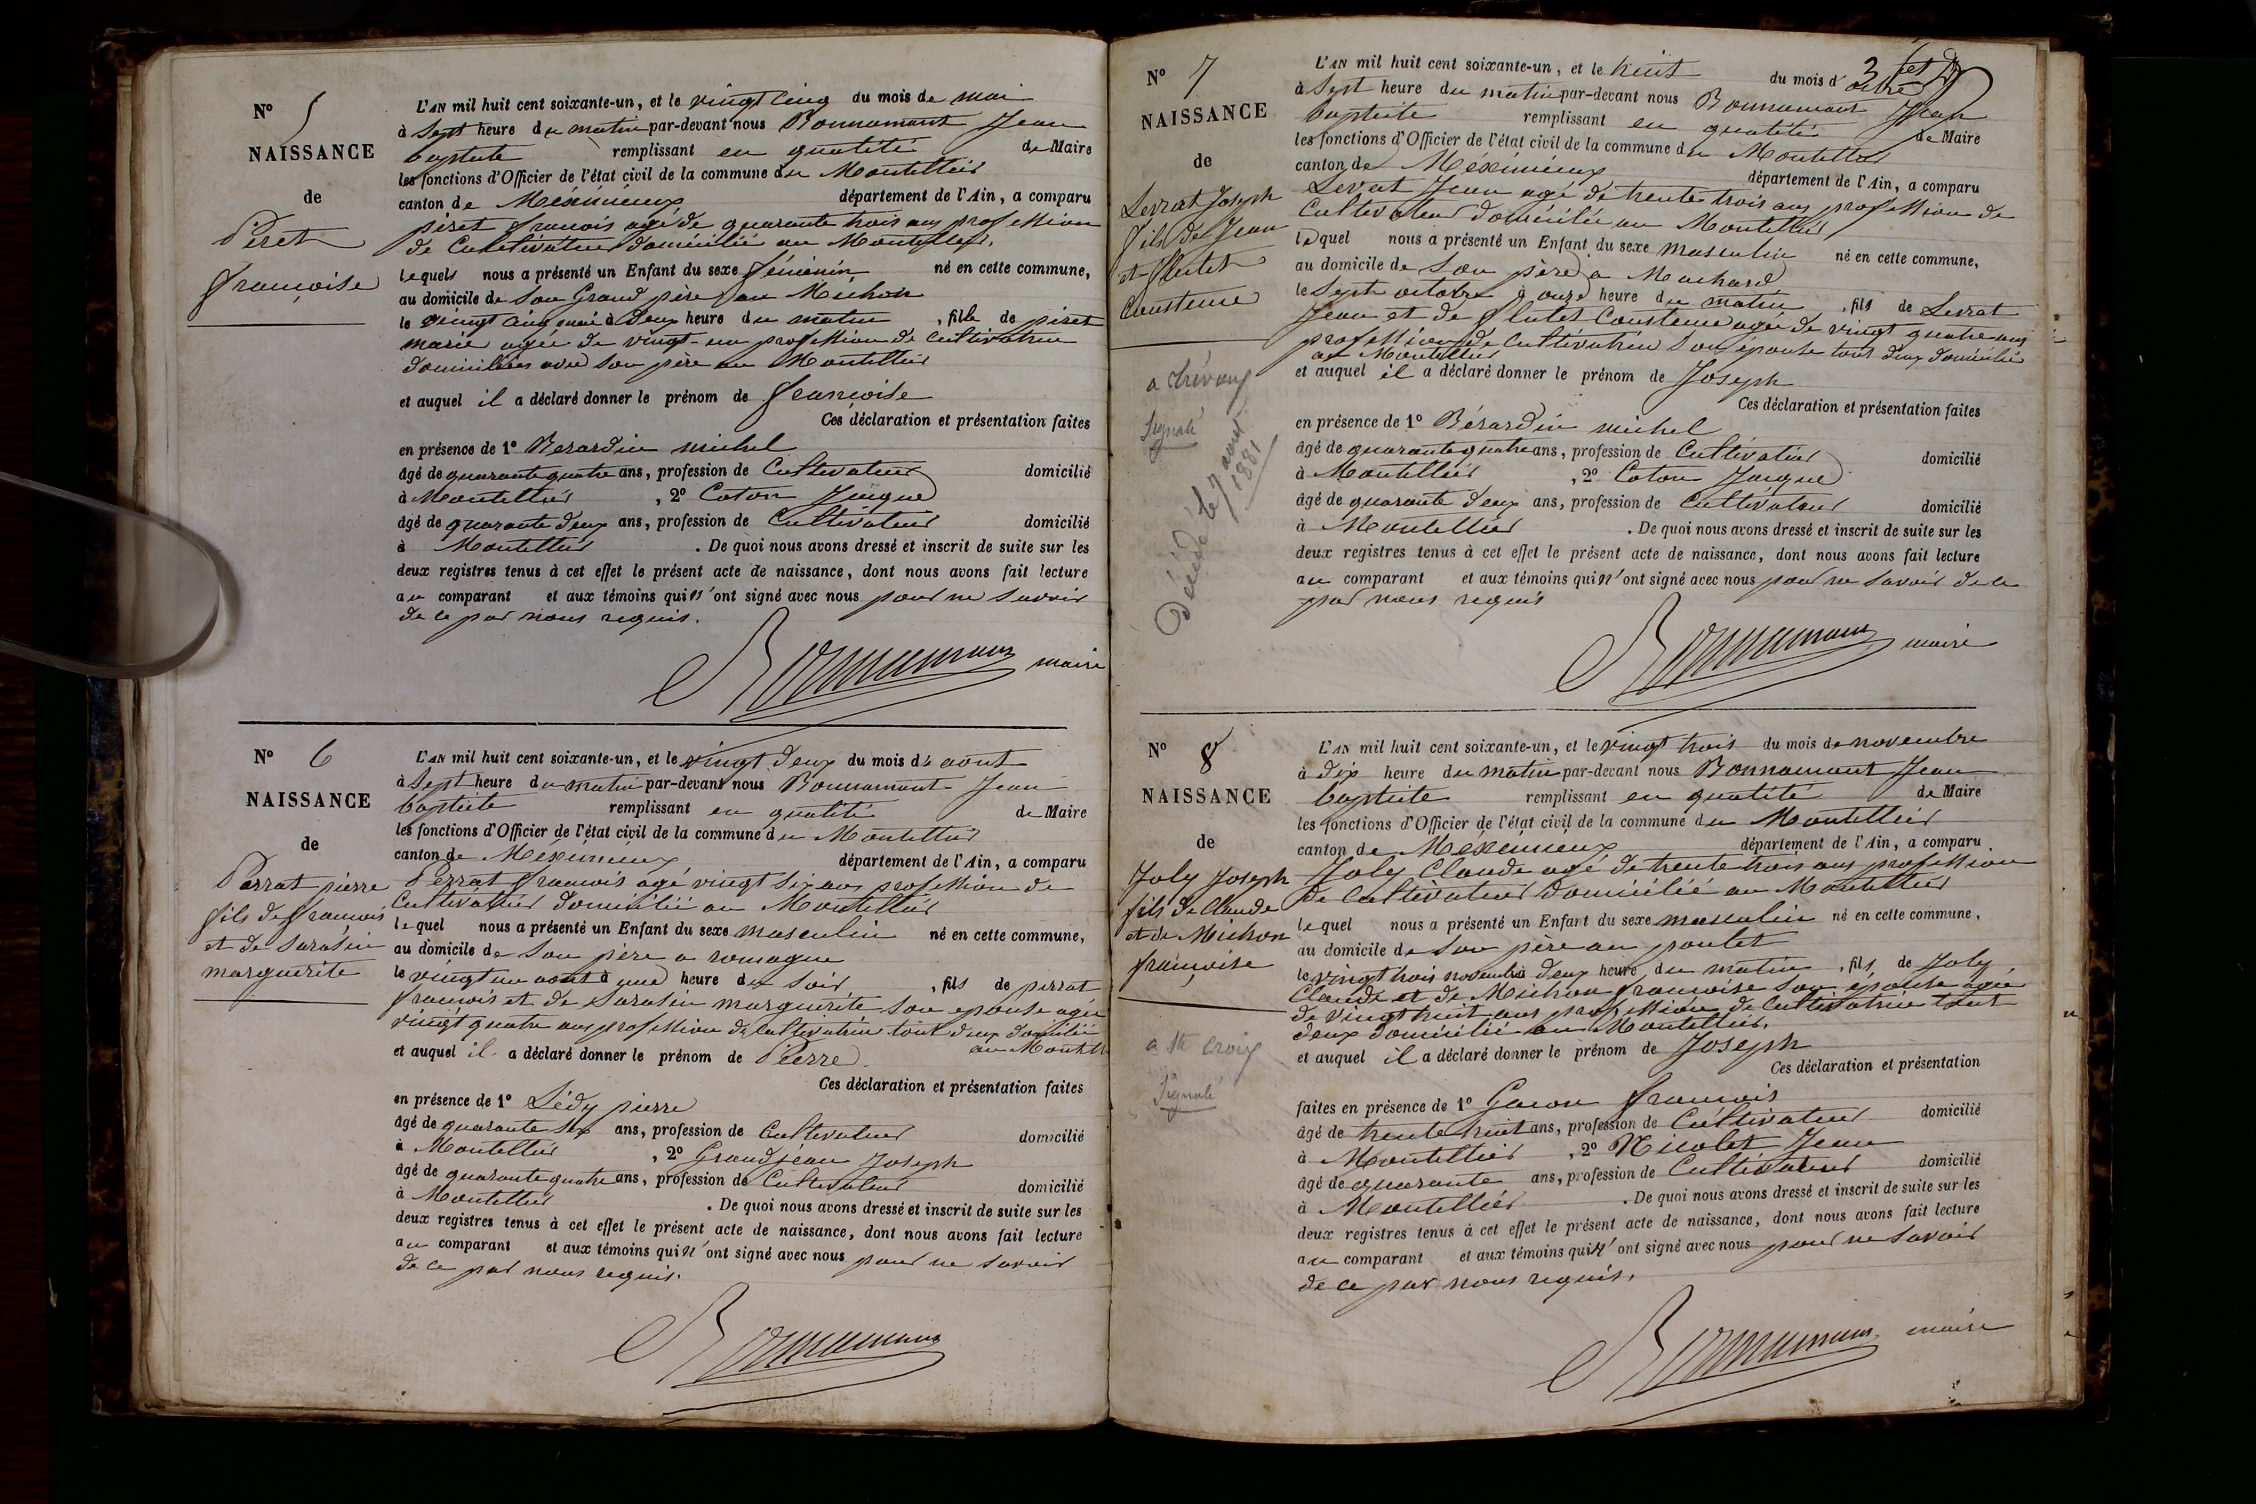 N° 5
NAISSANCE
de
Péret
françoise
L'AN mil huit cent soixante-un, et le vingt cinq du mois de mai
à Sept heure du matin par-devant nous Bonnamant Jean
baptiste remplissant en qualité de Maire
les fonctions d'Officier de l'état civil de la commune du Montellier
canton de Méximieux département de l'Ain, a comparu
péret francois agé de quarante trois ans profession
de Cultivateur domicilié au Montellier,
lequel nous a présenté un Enfant du sexe féminin né en cette commune,
au domicile de son Grand père au Michon
le vingt cinq mai à deux heure du matin, fille de péret
marie agée de vingt-un profession de cultivatrice
domiciliée avec son père au Montellier
et auquel il a déclaré donner le prénom de françoise
Ces déclaration et présentation faites
en présence de 1° Berardin michel
âgé de quarante quatre ans, profession de Cultivateur domicilié
à Montellier, 2° Coton Jacque
âgé de quarante deux ans, profession de Cultivateur domicilié
à Montellier. De quoi nous avons dressé et inscrit de suite sur les
deux registres tenus à cet effet le présent acte de naissance, dont nous avons fait lecture
au comparant et aux témoins qui n'ont signé avec nous pour ne savoir
de ce par nous requis.
Bonnamant maire
N° 6
NAISSANCE
de
Perrat pierre
fils de francois
et de Sarasin
marguerite
L'AN mil huit cent soixante-un, et le vingt deux du mois d'aout
à Sept heure du matin par-devant nous Bonnamant Jean
baptiste remplissant en qualité de Maire
les fonctions d'Officier de l'état civil de la commune du Montellier
canton de Méximieux département de l'Ain, a comparu
Perrat francois agé vingt six ans profession de
Cultivateur domicilié au Montellier
lequel nous a présenté un Enfant du sexe masculin né en cette commune,
au domicile de son père a romagne
le vingt un aout à une heure du soir, fils de perrat
francois et de Sarasin marguerite son epouse agée
vingt quatre ans profession de cultivatrice tout deux domicilié
au Montellier
et auquel il a déclaré donner le prénom de Pierre
Ces déclaration et présentation faites
en présence de 1° Lédy pierre
âgé de quarante six ans, profession de Cultivateur domicilié
à Montellier, 2° Grandjean Joseph
âgé de quarante quatre ans, profession de Cultivateur domicilié
à Montellier. De quoi nous avons dressé et inscrit de suite sur les
deux registres tenus à cet effet le présent acte de naissance, dont nous avons fait lecture
au comparant et aux témoins qui n'ont signé avec nous pour ne savoir
de ce par nous requis.
Bonnamant
N° 7
NAISSANCE
de
Levrat Joseph
fils de Jean
et flutet
Constence
a Crévoux
Signalé
Décédé le 7 aout
1881
3
L'AN mil huit cent soixante-un, et le huit du mois d'octbre
à Sept heure du matin par-devant nous Bonnamant Jean
baptiste remplissant en qualité de Maire
les fonctions d'Officier de l'état civil de la commune du Montellier
canton de Méximieux département de l'Ain, a comparu
Levrat Jean agé de trente trois ans profession de
Cultivateur domicilié au Montellier
lequel nous a présenté un Enfant du sexe masculin né en cette commune,
au domicile de son père a Machard
le Sept octobre à onze heure du matin, fils de Levrat
Jean et de flutet Constence agée de vingt quatre ans
profession de Cultivatrice son épouse tout deux domicilié
au Montellier
et auquel il a déclaré donner le prénom de Joseph
Ces déclaration et présentation faites
en présence de 1° Bérardin michel
âgé de quarante quatre ans, profession de Cultivateur domicilié
à Montellier, 2° Coton Jacque
âgé de quarante deux ans, profession de Cultivateur domicilié
à Montellier. De quoi nous avons dressé et inscrit de suite sur les
deux registres tenus à cet effet le présent acte de naissance, dont nous avons fait lecture
au comparant et aux témoins qui n'ont signé avec nous pour ne savoir de ce
par nous requis
Bonnamant maire
N° 8
NAISSANCE
de
Joly Joseph
fils de Claude
et de Michon
françoise
a Ste Croix
Signalé
L'AN mil huit cent soixante-un, et le vingt trois du mois de novembre
à dix heure du matin par-devant nous Bonnamant Jean
baptiste remplissant en qualité de Maire
les fonctions d'Officier de l'état civil de la commune du Montellier
canton de Méximieux département de l'Ain, a comparu
Joly Claude agé de trente trois ans profession
De Cultivateur domicilié au Montellier
lequel nous a présenté un Enfant du sexe masculin né en cette commune,
au domicile de son père au poulet
le vingt trois novembre à deux heure du matin, fils de Joly
Claude et de Michon françoise son épouse agée
de vingt huit ans profession de Cultivatrice tout
deux domicilié au Montellier,
et auquel il a déclaré donner le prénom de Joseph
Ces déclaration et présentation
faites en présence de 1° Gacon francois
âgé de trente huit ans, profession de Cultivateur domicilié
à Montellier, 2° Nicolet Jean
âgé de quarante ans, profession de Cultivateur domicilié
à Montellier. De quoi nous avons dressé et inscrit de suite sur les
deux registres tenus à cet effet le présent acte de naissance, dont nous avons fait lecture
au comparant et aux témoins qui n'ont signé avec nous pour ne savoir
de ce par nous requis.
Bonnamant maire